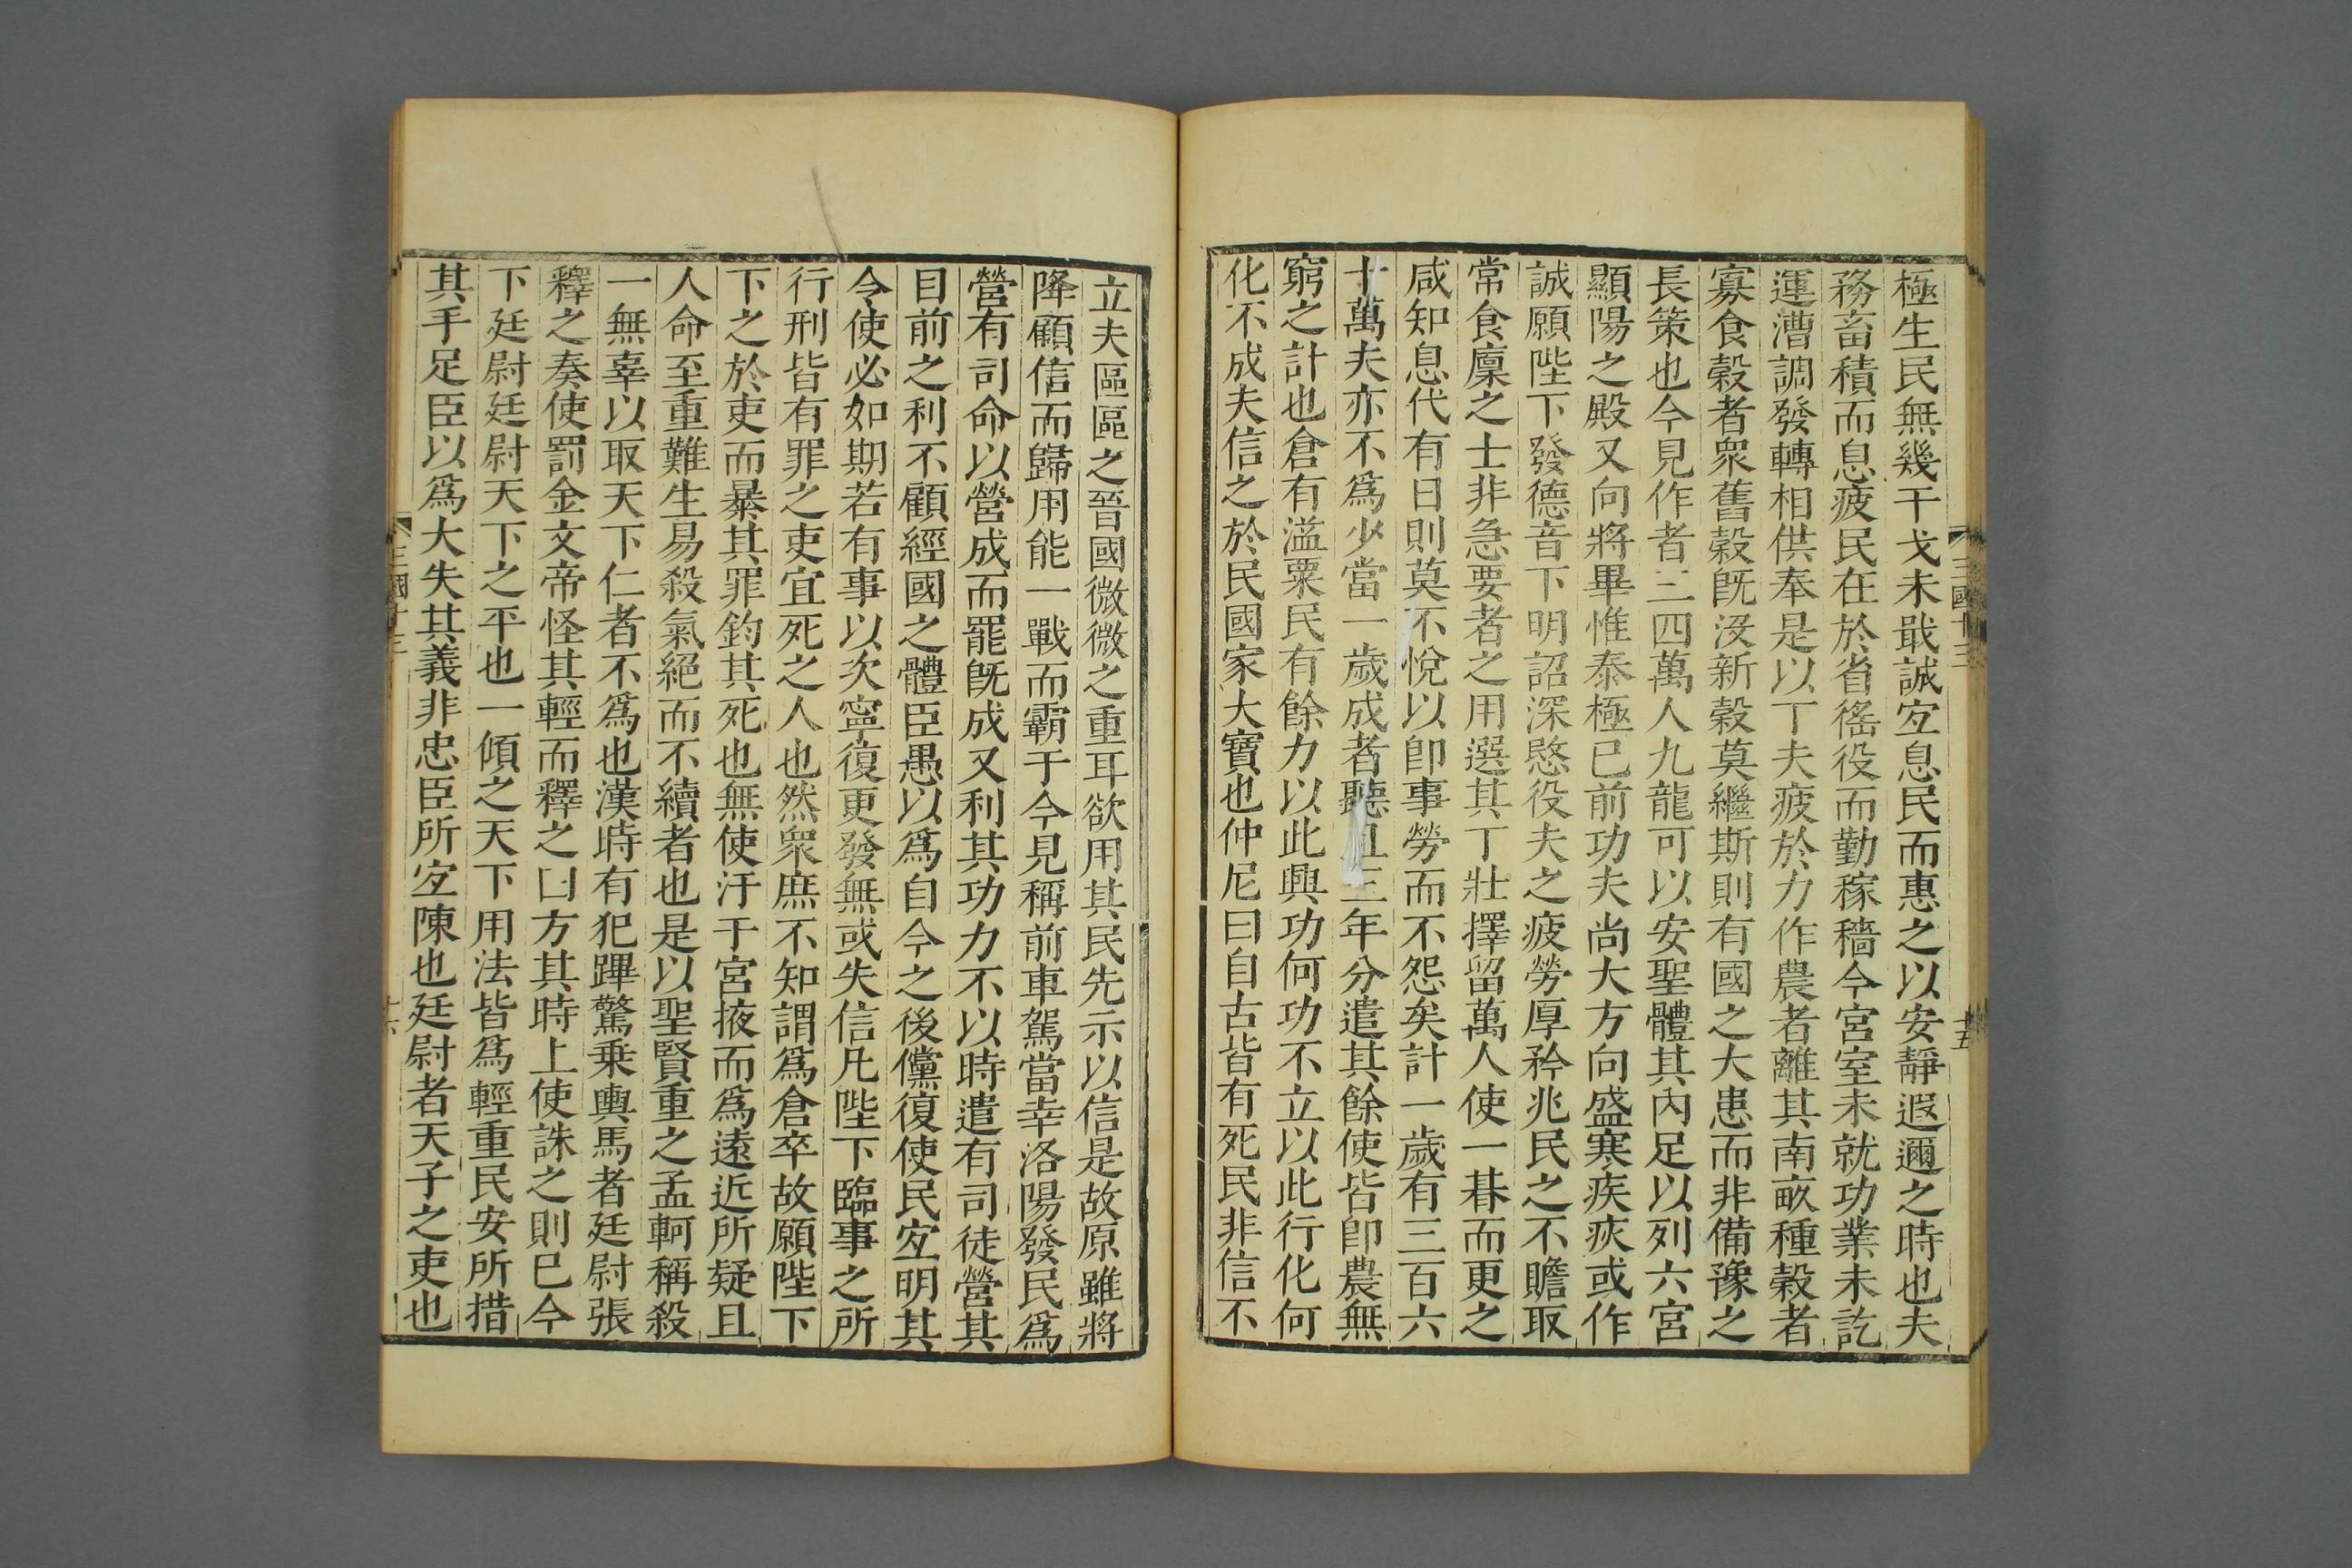 極生民無幾干戈未戢誠宐息民而惠之以安靜遐邇之時也夫
務畜積而息疲民在於省徭役而勤稼穡今宮室未就功業未訖
運漕調發轉相供奉是以丁夫疲於力作農者離其南畝種穀者
寡食穀者衆舊穀旣沒新穀莫繼斯則有國之大患而非備豫之
長策也今見作者三四萬人九龍可以安聖體其內足以列六宮
顯陽之殿又向將畢惟泰極已前功夫尚大方向盛寒疾疢或作
誠願陛下發德音下明詔深愍役夫之疲勞厚矜兆民之不贍取
常食廩之士非急要者之用選其丁壯擇留萬人使一朞而更之
咸知息代有日則莫不悅以卽事勞而不怨矣計一歲有三百六
十萬夫亦不爲少當一歲成者聽且三年分遣其餘使皆卽農無
窮之計也倉有溢粟民有餘力以此興功何功不立以此行化何
化不成夫信之於民國家大寶也仲尼曰自古皆有死民非信不
三國十三
十五
立夫區區之晉國微微之重耳欲用其民先示以信是故原雖將
降顧信而歸用能一戰而霸于今見稱前車駕當幸洛陽發民爲
營有司命以營成而罷旣成又利其功力不以時遣有司徒營其
目前之利不顧經國之體臣愚以爲自今之後儻復使民宐明其
令使必如期若有事以次寧復更發無或失信凡陛下臨事之所
行刑皆有罪之吏宜死之人也然衆庶不知謂爲倉卒故願陛下
下之於吏而暴其罪鈞其死也無使汙于宮掖而爲遠近所疑且
人命至重難生易殺氣絕而不續者也是以聖賢重之孟軻稱殺
一無辜以取天下仁者不爲也漢時有犯蹕驚乗輿馬者廷尉張
釋之奏使罰金文帝怪其輕而釋之曰方其時上使誅之則已今
下廷尉廷尉天下之平也一傾之天下用法皆爲輕重民安所措
其手足臣以爲大失其義非忠臣所宐陳也廷尉者天子之吏也
三國十三
十六